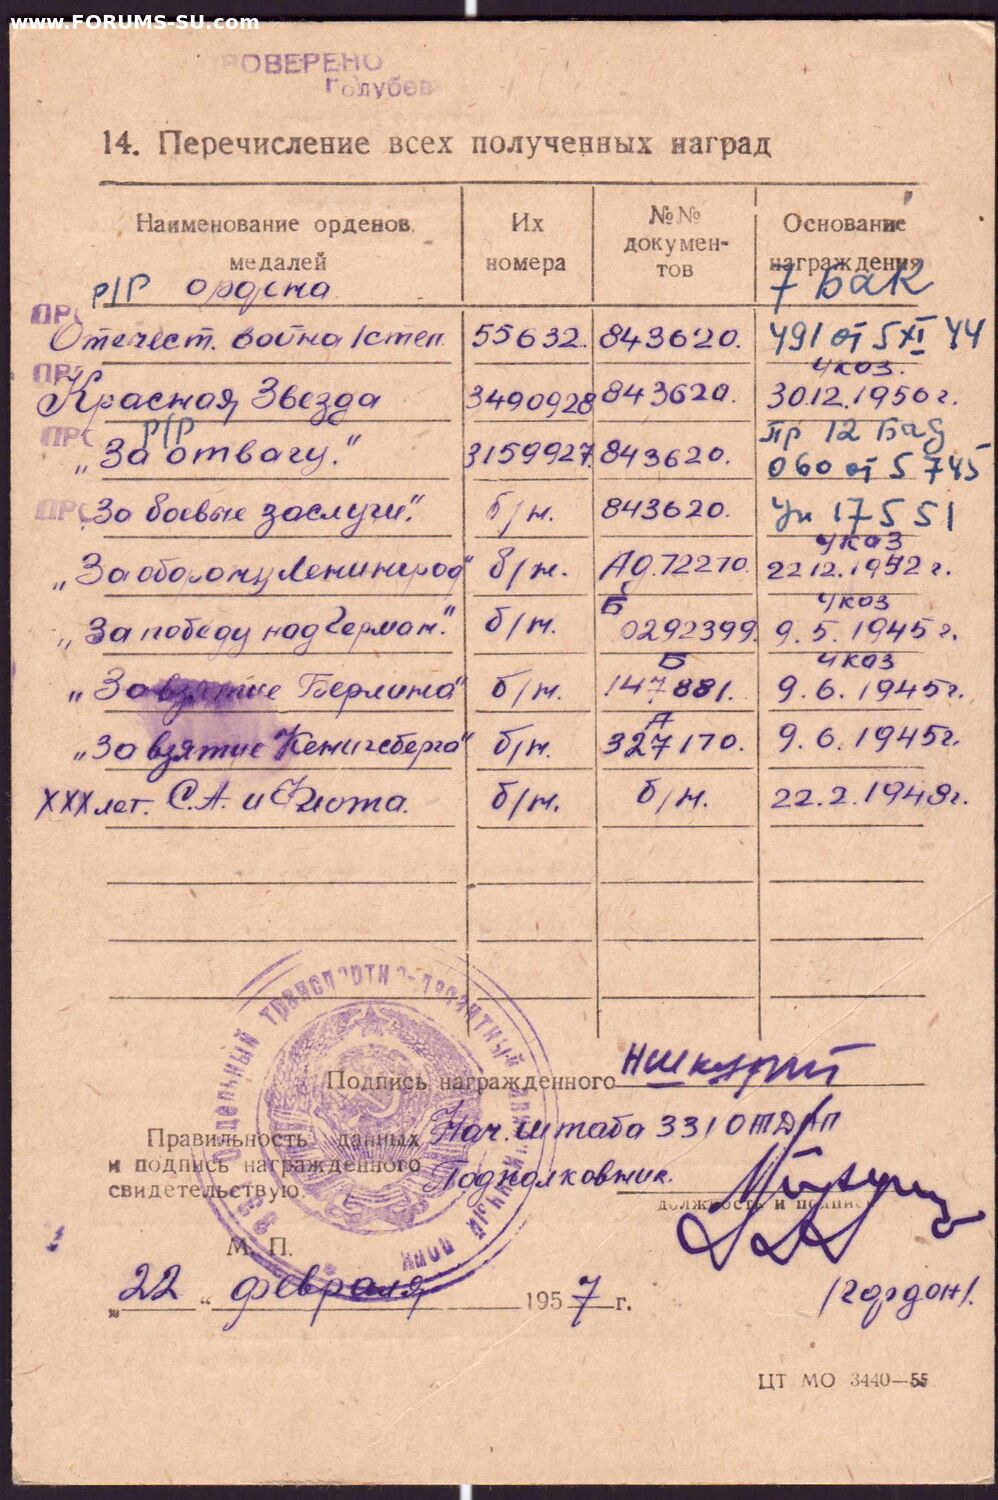 www.FORUMS-SU.com
ПРОВЕРЕНО
Голубев
14. Перечисление всех полученных наград
Наименование орденов, медалей | Их номера | №№ докумен-тов | Основание награждения
р/р ордена | 7 БАК
Отечест. война I степ. | 55632. | 843620. | 491 от 5 XI 44
Указ.
Красная Звезда | 3490928 | 843620. | 30.12.1956 г.
р/р | Пр 12 Бад
„За отвагу." | 3159927. | 843620. | 060 от 5 7 45
„За боевые заслуги". | б/н. | 843620. | Ук 17 5 51
Указ
„За оборону Ленинград" | б/н. | Ад.72270. | 22 12.1942 г.
Б | Указ
„За победу над Герман." | б/н. | 0292399. | 9.5.1945 г.
Б | Указ
„За взятие Берлина" | б/н. | 147881. | 9.6.1945г.
А
„За взятие Кенигсберга" | б/н. | 327170. | 9.6.1945г.
XXX лет. С.А. и Флота. | б/н. | б/н. | 22.2.1948г.
Отдельный транспортно-десантный
Подпись награжденного
Правильность данных и подпись награжденного свидетельствую.
Нач. штаба 331 ОТДАП
Подполковник.
должность и подпись
М. П.
„22" февраля 1957 г.
/Гордон/.
ЦТ МО 3440—55